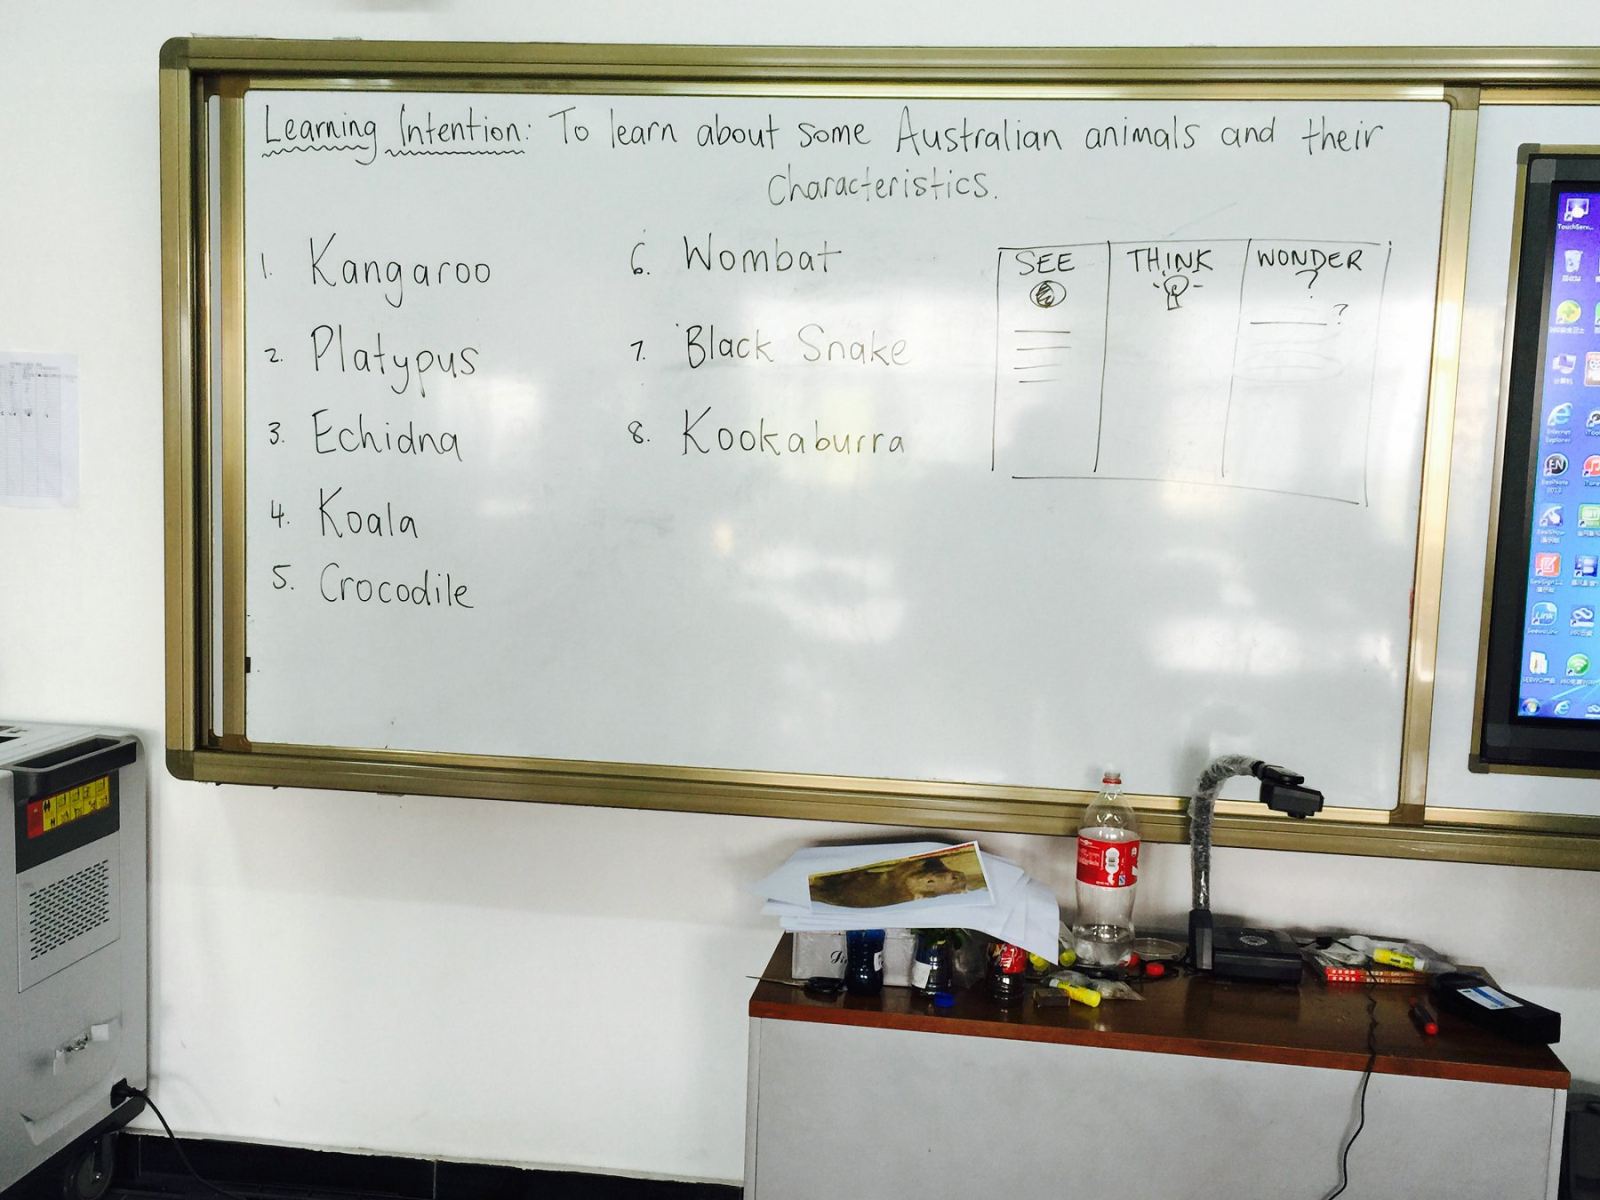 Learning Intention: To learn about some Australian animals and their
Characteristics.
1. Kangaroo
2. Platypus
3. Echidna
4. Koala
5. Crocodile
6. Wombat
7. Black Snake
8. Kookaburra
SEE THINK WONDER
?
?
Internet
Explorer